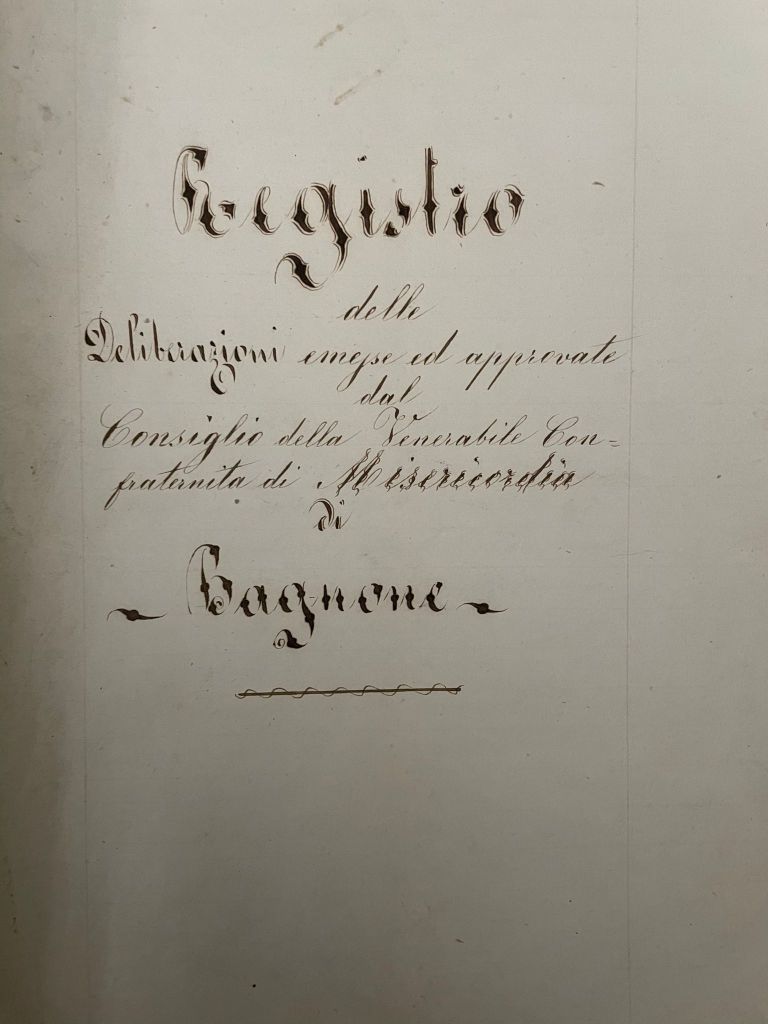 Registro
delle
Deliberazioni emesse ed approvate
dal
Consiglio della Venerabile Con=
fraternita di Misericordia
di
- Bagnone -